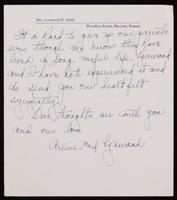 Mrs. Lynwood H. Smith
Woodleys Estate, Smyrna, Kansas
It is hard to give up our parents
even though we know they have
lived a long useful life. Lynwood
and I have both experienced it and
do send you our heartfelt
sympathy.
Our thoughts are with you
and our love
Arline and Lynwood